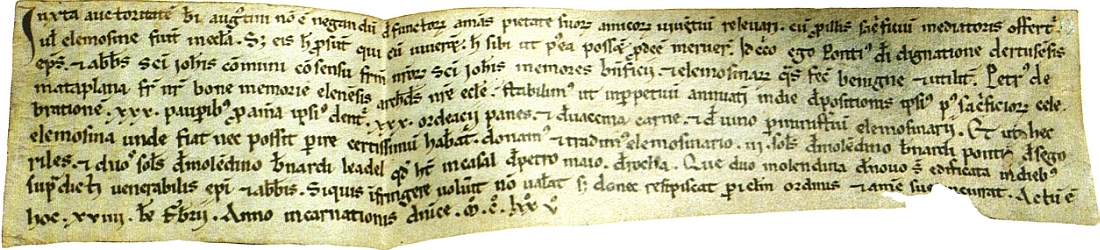 Iuxta auctoritatē bī augustini nō ē negandū d'functorū amās pietate suorū amicorū uiuentiū releuari. cū p illis sac'ficiū mediatoris offertr̄.
ul' elemosine fiunt in eccl'a. S; eis h̄ p'sunt qui cū uiuerēt h̄ sibi ut p'ea possēt p'dee meruer̄. Id'eco ego Ponti' dī dignatione dertusēsis
ep̄s. & abb̄s sc̄i ioh̄is cōmuni cōsensu frm̄ nrōr sc̄i ioh̄is memores bn̄ficij & elemosinarū q̄s fec̄ benigne & utilit̄. Petr' de
mataplana fr̄ nr̄ bone memorie elenēsis archid's nr̄e eccl'e. stabilim' ut inp̄petuum annuati in die d'positionis ipsi' p' sac'ficiorū cele
bratione. xxx. paup̄ib' p anīa ipsi' dent̄. xxx. ordeacij panes. & d'uaccina carne & d' uino p manū elemosinarij. Et ut hec
elemosina unde fiat nec possit p̄ire certissimū habeat. donam' & tradim' elemosinario. iij. sol's d'molendino b'nardi pontij d'sego
riles. & duo' sol's d'molendino b'nardi beadel q̄s ht̄ in casal d'petro maio. d'rocha. Que duo molendina d'nouo s̄ edificata in dieb'
sup̄dicti uenerabilis ep̄i & abb̄is. Siquis īfringere uoluit nō ualeat s; donec resipiscat p ictm ordinis & anīe sue incurrat. Actū ē
hoc. xviij. kl'. Ebr̄ij. Anno incarnationis dn̄ice. M. C. lxx. v